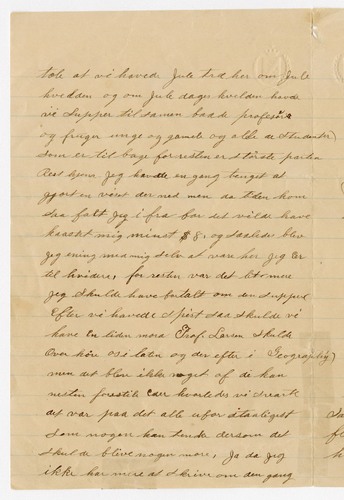 tale at vi havede Jule træ her om Jule
kvelden og om Jule dages kvelden havde
vi Supper til samen baade profesöre
og fruger unge og gamele og alle de Studenter
som er til bage for resten er störste parten
Rest hjem. Jeg havde en gang tenget at
gjort en viset der ned men da tiden kom
saa falt jeg i fra for det vilde have
kaaskt mig minst $8. og saaledes blev
jeg ening med mig selv at være her jeg er
til hvidere, for resten var det
jeg skulde have fortalt om den supper
Efter vi havede Spist saa skulde vi
have en liden mora Prof. Larsen skulde
over höre os i latin og der efter i Geographig
men det blev ikke noget af de kan
nesten forestile Eer hvorledes vi
det var paa det alle
som nogen kan tenke dersom det
skulde blive nogn more, Ja da jeg
ikke har mere at skrive om den gang